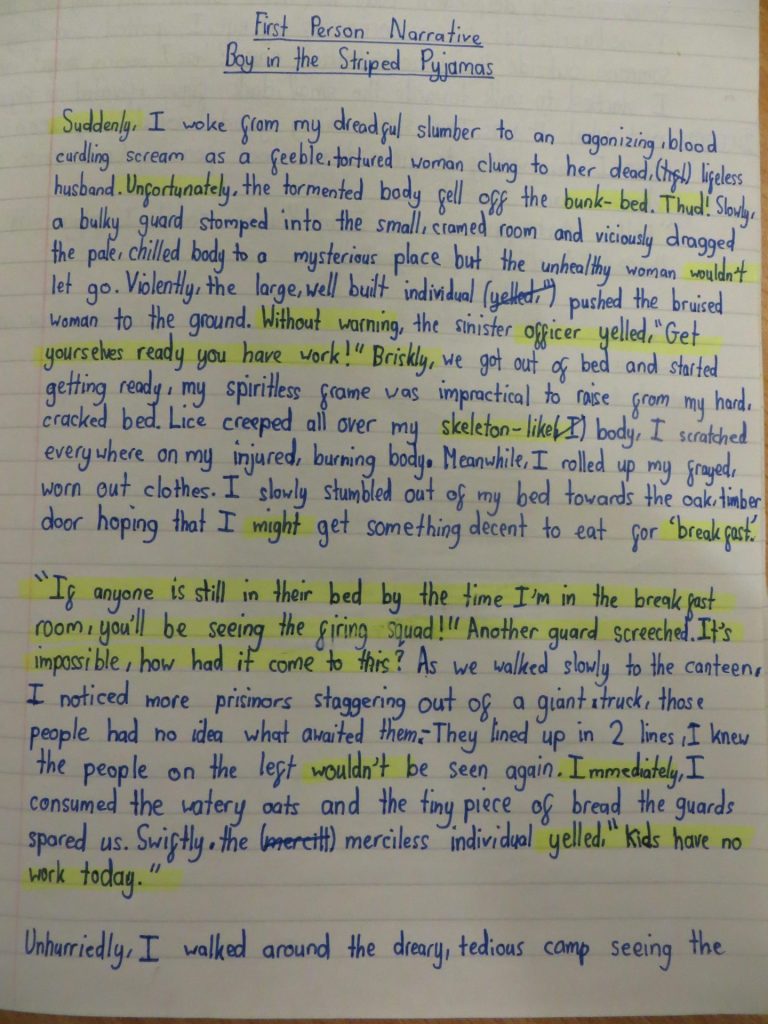 First Person Narrative
Boy in the Striped Pyjamas
Suddenly, I woke from my dreadful slumber to an agonizing, blood
curdling scream as a feeble, tortured woman clung to her dead, lifeless
husband. Unfortunately, the tormented body fell off the bunk-bed. Thud! Slowly,
a bulky guard stomped into the small, cramed room and viciously dragged
the pale, chilled body to a mysterious place but the unhealthy woman wouldn't
let go. Violently, the large, well built individual (yelled,") pushed the bruised
woman to the ground. Without warning, the sinister officer yelled, "Get
yourselves ready you have work!" Briskly, we got out of bed and started
getting ready, my spiritless frame was impractical to raise from my hard,
cracked bed. Lice creeped all over my skeleton-like(, I) body, I scratched
everywhere on my injured, burning body. Meanwhile, I rolled up my frayed,
worn out clothes. I slowly stumbled out of my bed towards the oak, timber
door hoping that I might get something decent to eat for 'breakfast'.
"If anyone is still in their bed by the time I'm in the breakfast
room, you'll be seeing the firing squad!" Another guard screeched. It's
impossible, how had it come to this? As we walked slowly to the canteen,
I noticed more prisinors staggering out of a giant truck, those
people had no idea what awaited them. They lined up in 2 lines, I knew
the people on the left wouldn't be seen again. Immediately, I
consumed the watery oats and the tiny piece of bread the guards
spared us. Swiftly, the (mercitt) merciless individual yelled, "Kids have no
work today."
Unhurriedly, I walked around the dreary, tedious camp seeing the